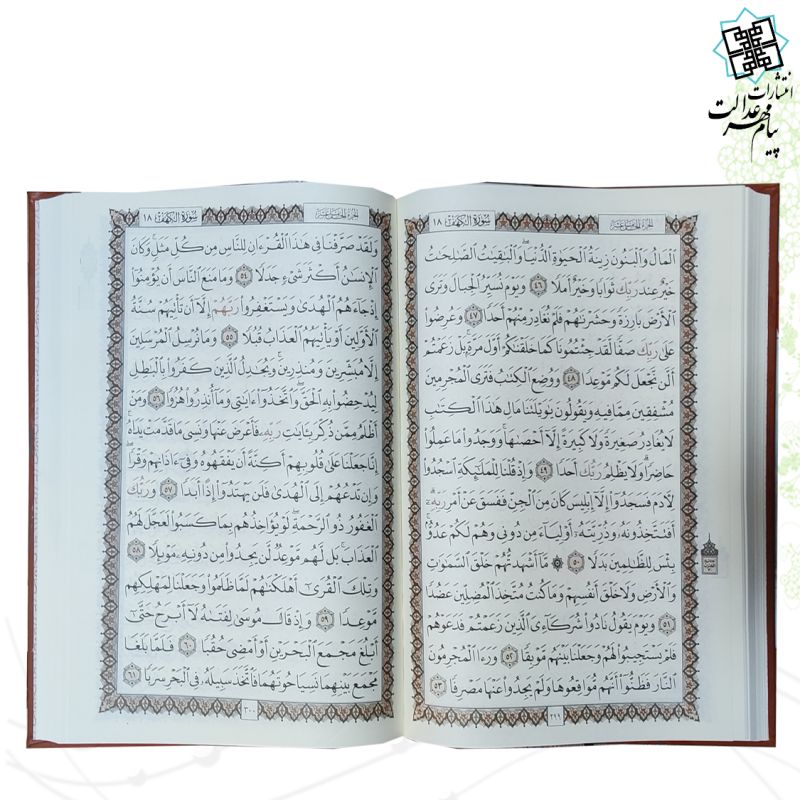 انتشارات
پیام مهر عدالت
سُورَةُ الكَهْفِ ١٨
الجزء الخامس عشر
ٱلْمَالُ وَٱلْبَنُونَ زِينَةُ ٱلْحَيَوٰةِ ٱلدُّنْيَا ۖ وَٱلْبَٰقِيَٰتُ ٱلصَّٰلِحَٰتُ
خَيْرٌ عِندَ رَبِّكَ ثَوَابًا وَخَيْرٌ أَمَلًا ٤٦ وَيَوْمَ نُسَيِّرُ ٱلْجِبَالَ وَتَرَى
ٱلْأَرْضَ بَارِزَةً وَحَشَرْنَٰهُمْ فَلَمْ نُغَادِرْ مِنْهُمْ أَحَدًا ٤٧ وَعُرِضُوا۟
عَلَىٰ رَبِّكَ صَفًّا لَّقَدْ جِئْتُمُونَا كَمَا خَلَقْنَٰكُمْ أَوَّلَ مَرَّةٍۭ ۚ بَلْ زَعَمْتُمْ
أَلَّن نَّجْعَلَ لَكُم مَّوْعِدًا ٤٨ وَوُضِعَ ٱلْكِتَٰبُ فَتَرَى ٱلْمُجْرِمِينَ
مُشْفِقِينَ مِمَّا فِيهِ وَيَقُولُونَ يَٰوَيْلَتَنَا مَالِ هَٰذَا ٱلْكِتَٰبِ
لَا يُغَادِرُ صَغِيرَةً وَلَا كَبِيرَةً إِلَّآ أَحْصَىٰهَا ۚ وَوَجَدُوا۟ مَا عَمِلُوا۟
حَاضِرًا ۗ وَلَا يَظْلِمُ رَبُّكَ أَحَدًا ٤٩ وَإِذْ قُلْنَا لِلْمَلَٰٓئِكَةِ ٱسْجُدُوا۟
لِـَٔادَمَ فَسَجَدُوٓا۟ إِلَّآ إِبْلِيسَ كَانَ مِنَ ٱلْجِنِّ فَفَسَقَ عَنْ أَمْرِ رَبِّهِۦٓ ۗ
أَفَتَتَّخِذُونَهُۥ وَذُرِّيَّتَهُۥٓ أَوْلِيَآءَ مِن دُونِى وَهُمْ لَكُمْ عَدُوٌّۢ ۚ
بِئْسَ لِلظَّٰلِمِينَ بَدَلًا ٥٠ ۞ مَّآ أَشْهَدتُّهُمْ خَلْقَ ٱلسَّمَٰوَٰتِ
وَٱلْأَرْضِ وَلَا خَلْقَ أَنفُسِهِمْ وَمَا كُنتُ مُتَّخِذَ ٱلْمُضِلِّينَ عَضُدًا
٥١ وَيَوْمَ يَقُولُ نَادُوا۟ شُرَكَآءِىَ ٱلَّذِينَ زَعَمْتُمْ فَدَعَوْهُمْ
فَلَمْ يَسْتَجِيبُوا۟ لَهُمْ وَجَعَلْنَا بَيْنَهُم مَّوْبِقًا ٥٢ وَرَءَا ٱلْمُجْرِمُونَ
ٱلنَّارَ فَظَنُّوٓا۟ أَنَّهُم مُّوَاقِعُوهَا وَلَمْ يَجِدُوا۟ عَنْهَا مَصْرِفًا ٥٣
٢٩٩
سُورَةُ الكَهْفِ ١٨
الجزء الخامس عشر
وَلَقَدْ صَرَّفْنَا فِى هَٰذَا ٱلْقُرْءَانِ لِلنَّاسِ مِن كُلِّ مَثَلٍ ۚ وَكَانَ
ٱلْإِنسَٰنُ أَكْثَرَ شَىْءٍ جَدَلًا ٥٤ وَمَا مَنَعَ ٱلنَّاسَ أَن يُؤْمِنُوٓا۟
إِذْ جَآءَهُمُ ٱلْهُدَىٰ وَيَسْتَغْفِرُوا۟ رَبَّهُمْ إِلَّآ أَن تَأْتِيَهُمْ سُنَّةُ
ٱلْأَوَّلِينَ أَوْ يَأْتِيَهُمُ ٱلْعَذَابُ قُبُلًا ٥٥ وَمَا نُرْسِلُ ٱلْمُرْسَلِينَ
إِلَّا مُبَشِّرِينَ وَمُنذِرِينَ ۚ وَيُجَٰدِلُ ٱلَّذِينَ كَفَرُوا۟ بِٱلْبَٰطِلِ
لِيُدْحِضُوا۟ بِهِ ٱلْحَقَّ ۖ وَٱتَّخَذُوٓا۟ ءَايَٰتِى وَمَآ أُنذِرُوا۟ هُزُوًا ٥٦ وَمَنْ
أَظْلَمُ مِمَّن ذُكِّرَ بِـَٔايَٰتِ رَبِّهِۦ فَأَعْرَضَ عَنْهَا وَنَسِىَ مَا قَدَّمَتْ يَدَاهُ ۚ
إِنَّا جَعَلْنَا عَلَىٰ قُلُوبِهِمْ أَكِنَّةً أَن يَفْقَهُوهُ وَفِىٓ ءَاذَانِهِمْ وَقْرًا ۖ
وَإِن تَدْعُهُمْ إِلَى ٱلْهُدَىٰ فَلَن يَهْتَدُوٓا۟ إِذًا أَبَدًا ٥٧ وَرَبُّكَ
ٱلْغَفُورُ ذُو ٱلرَّحْمَةِ ۖ لَوْ يُؤَاخِذُهُم بِمَا كَسَبُوا۟ لَعَجَّلَ لَهُمُ
ٱلْعَذَابَ ۚ بَل لَّهُم مَّوْعِدٌ لَّن يَجِدُوا۟ مِن دُونِهِۦ مَوْئِلًا ٥٨
وَتِلْكَ ٱلْقُرَىٰٓ أَهْلَكْنَٰهُمْ لَمَّا ظَلَمُوا۟ وَجَعَلْنَا لِمَهْلِكِهِم
مَّوْعِدًا ٥٩ وَإِذْ قَالَ مُوسَىٰ لِفَتَىٰهُ لَآ أَبْرَحُ حَتَّىٰٓ
أَبْلُغَ مَجْمَعَ ٱلْبَحْرَيْنِ أَوْ أَمْضِىَ حُقُبًا ٦٠ فَلَمَّا بَلَغَا
مَجْمَعَ بَيْنِهِمَا نَسِيَا حُوتَهُمَا فَٱتَّخَذَ سَبِيلَهُۥ فِى ٱلْبَحْرِ سَرَبًا ٦١
٣٠٠